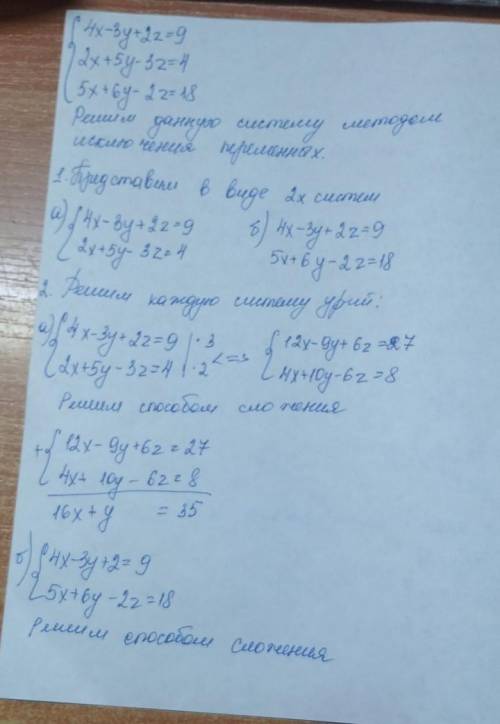 {4x-3y+2z=9
2x+5y-3z=4
5x+6y-2z=18
Решим данную систему методом
исключения переменных.
1. Представим в виде 2х систем
а) {4x-3y+2z=9
2x+5y-3z=4
б) 4x-3y+2z=9
5x+6y-2z=18
2. Решим каждую систему ур-ий:
а) {4x-3y+2z=9 | ·3
2x+5y-3z=4 | ·2 <=>
{12x-9y+6z=27
4x+10y-6z=8
Решим способом сложения
+ {12x-9y+6z=27
4x+10y-6z=8
16x+y =35
б) {4x-3y+2=9
5x+6y-2z=18
Решим способом сложения